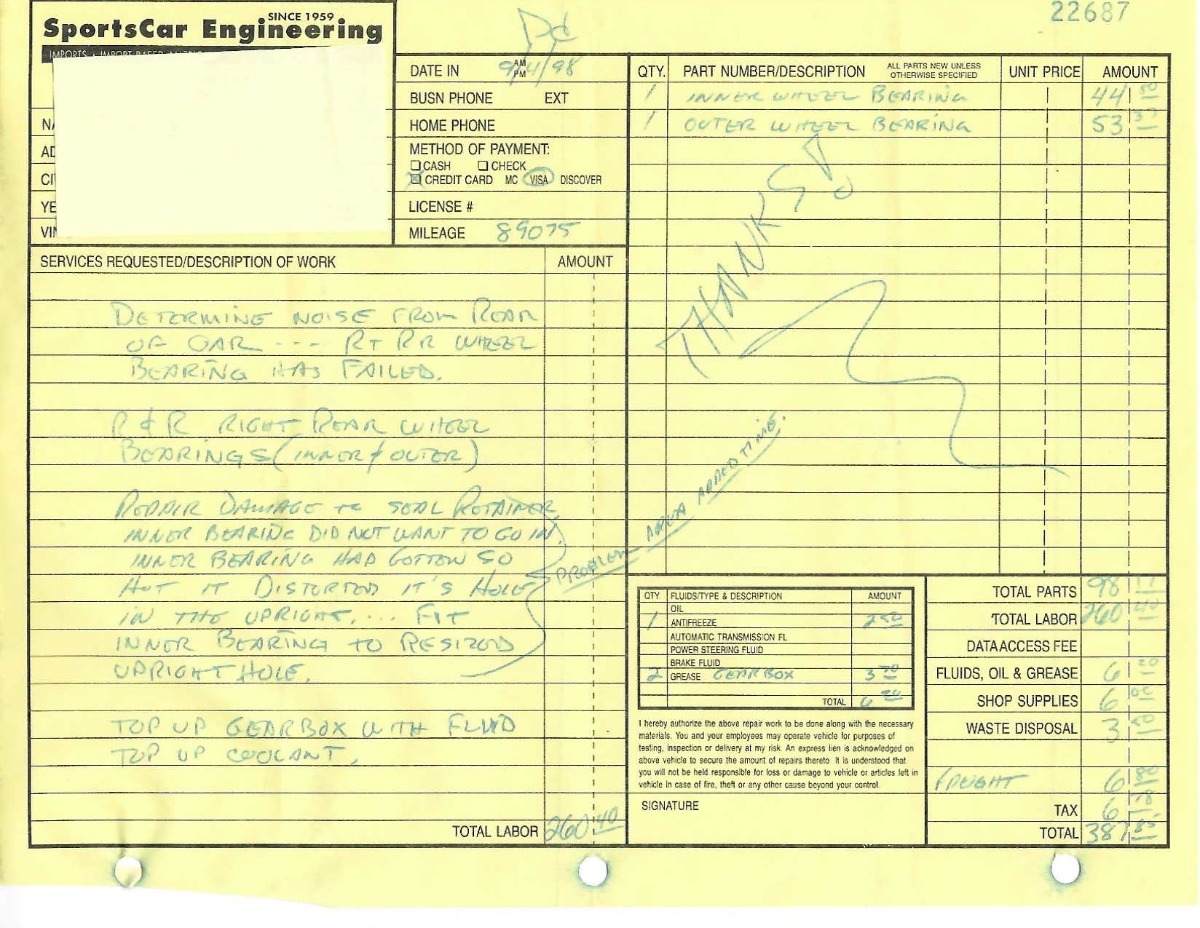 SINCE 1959
SportsCar Engineering
22687
Pd
DATE IN 9/ /98
AM
PM
BUSN PHONE EXT
HOME PHONE
METHOD OF PAYMENT:
CASH CHECK
CREDIT CARD MC VISA DISCOVER
LICENSE #
MILEAGE 89075
QTY. PART NUMBER/DESCRIPTION ALL PARTS NEW UNLESS OTHERWISE SPECIFIED UNIT PRICE AMOUNT
1 INNER WHEEL BEARING 44 80
1 OUTER WHEEL BEARING 53 37
THANKS!
SERVICES REQUESTED/DESCRIPTION OF WORK AMOUNT
DETERMINE NOISE FROM REAR
OF CAR --- RT RR WHEEL
BEARING HAS FAILED.
R & R RIGHT REAR WHEEL
BEARINGS (INNER & OUTER)
REPAIR DAMAGE TO SEAL RETAINER
INNER BEARING DID NOT WANT TO GO IN.
INNER BEARING HAD GOTTON SO
HOT IT DISTORTED IT'S HOLE
IN THE UPRIGHT.... FIT
INNER BEARING TO RESIZED
UPRIGHT HOLE.
PROBLEM AREA ADDED TIME.
TOP UP GEARBOX WITH FLUID
TOP UP COOLANT.
TOTAL LABOR 260 40
QTY FLUIDS/TYPE & DESCRIPTION AMOUNT
OIL
1 ANTIFREEZE 2 50
AUTOMATIC TRANSMISSION FL
POWER STEERING FLUID
BRAKE FLUID
2 GREASE GEARBOX 3 70
TOTAL 6 20
I hereby authorize the above repair work to be done along with the necessary
materials. You and your employees may operate vehicle for purposes of
testing, inspection or delivery at my risk. An express lien is acknowledged on
above vehicle to secure the amount of repairs thereto. It is understood that
you will not be held responsible for loss or damage to vehicle or articles left in
vehicle in case of fire, theft or any other cause beyond your control.
SIGNATURE
TOTAL PARTS 98 17
TOTAL LABOR 260 40
DATA ACCESS FEE
FLUIDS, OIL & GREASE 6 20
SHOP SUPPLIES 6 00
WASTE DISPOSAL 3 50
FREIGHT 6 80
TAX 6 78
TOTAL 387 85